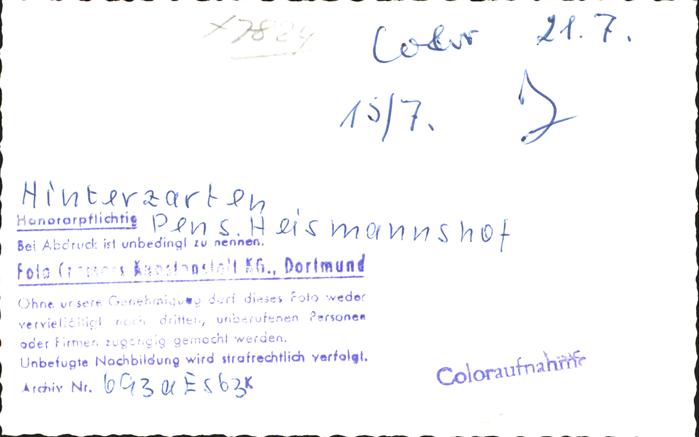 X7824
Color 21.7.
15/7.
Hinterzarten
Honorarpflichtig Pens. Heismannshof
Bei Abdruck ist unbedingt zu nennen.
Foto Kunstanstalt KG., Dortmund
Ohne unsere Genehmigung darf dieses Foto weder
vervielfältigt noch dritten, unberufenen Personen
oder Firmen zugängig gemacht werden.
Unbefugte Nachbildung wird strafrechtlich verfolgt.
Archiv Nr. 693aEs63K
Coloraufnahme